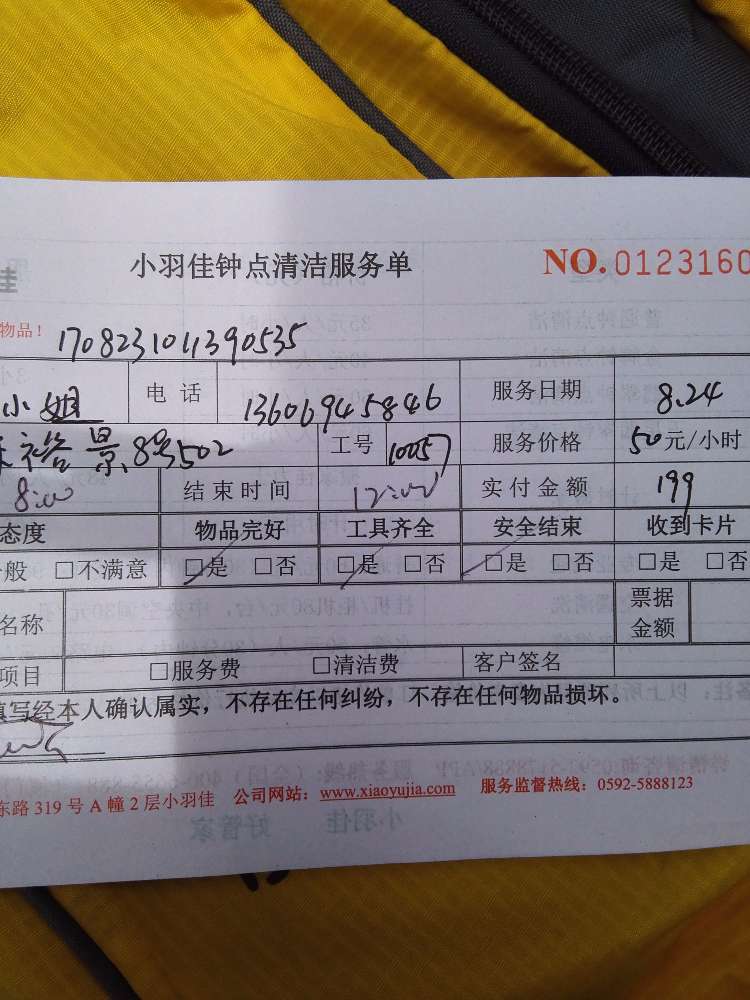 小羽佳钟点清洁服务单 NO.0123160
物品！ 1708231011390535
小姐 电话 13606945846 服务日期 8.24
裕景8号502 工号 10057 服务价格 50元/小时
8:00 结束时间 12:00 实付金额 199
态度 物品完好 工具齐全 安全结束 收到卡片
般 □不满意 □是 □否 □是 □否 □是 □否 □是 □否
名称 票据金额
项目 □服务费 □清洁费 客户签名
填写经本人确认属实，不存在任何纠纷，不存在任何物品损坏。
东路 319 号 A 幢 2 层小羽佳 公司网站：www.xiaoyujia.com 服务监督热线：0592-5888123